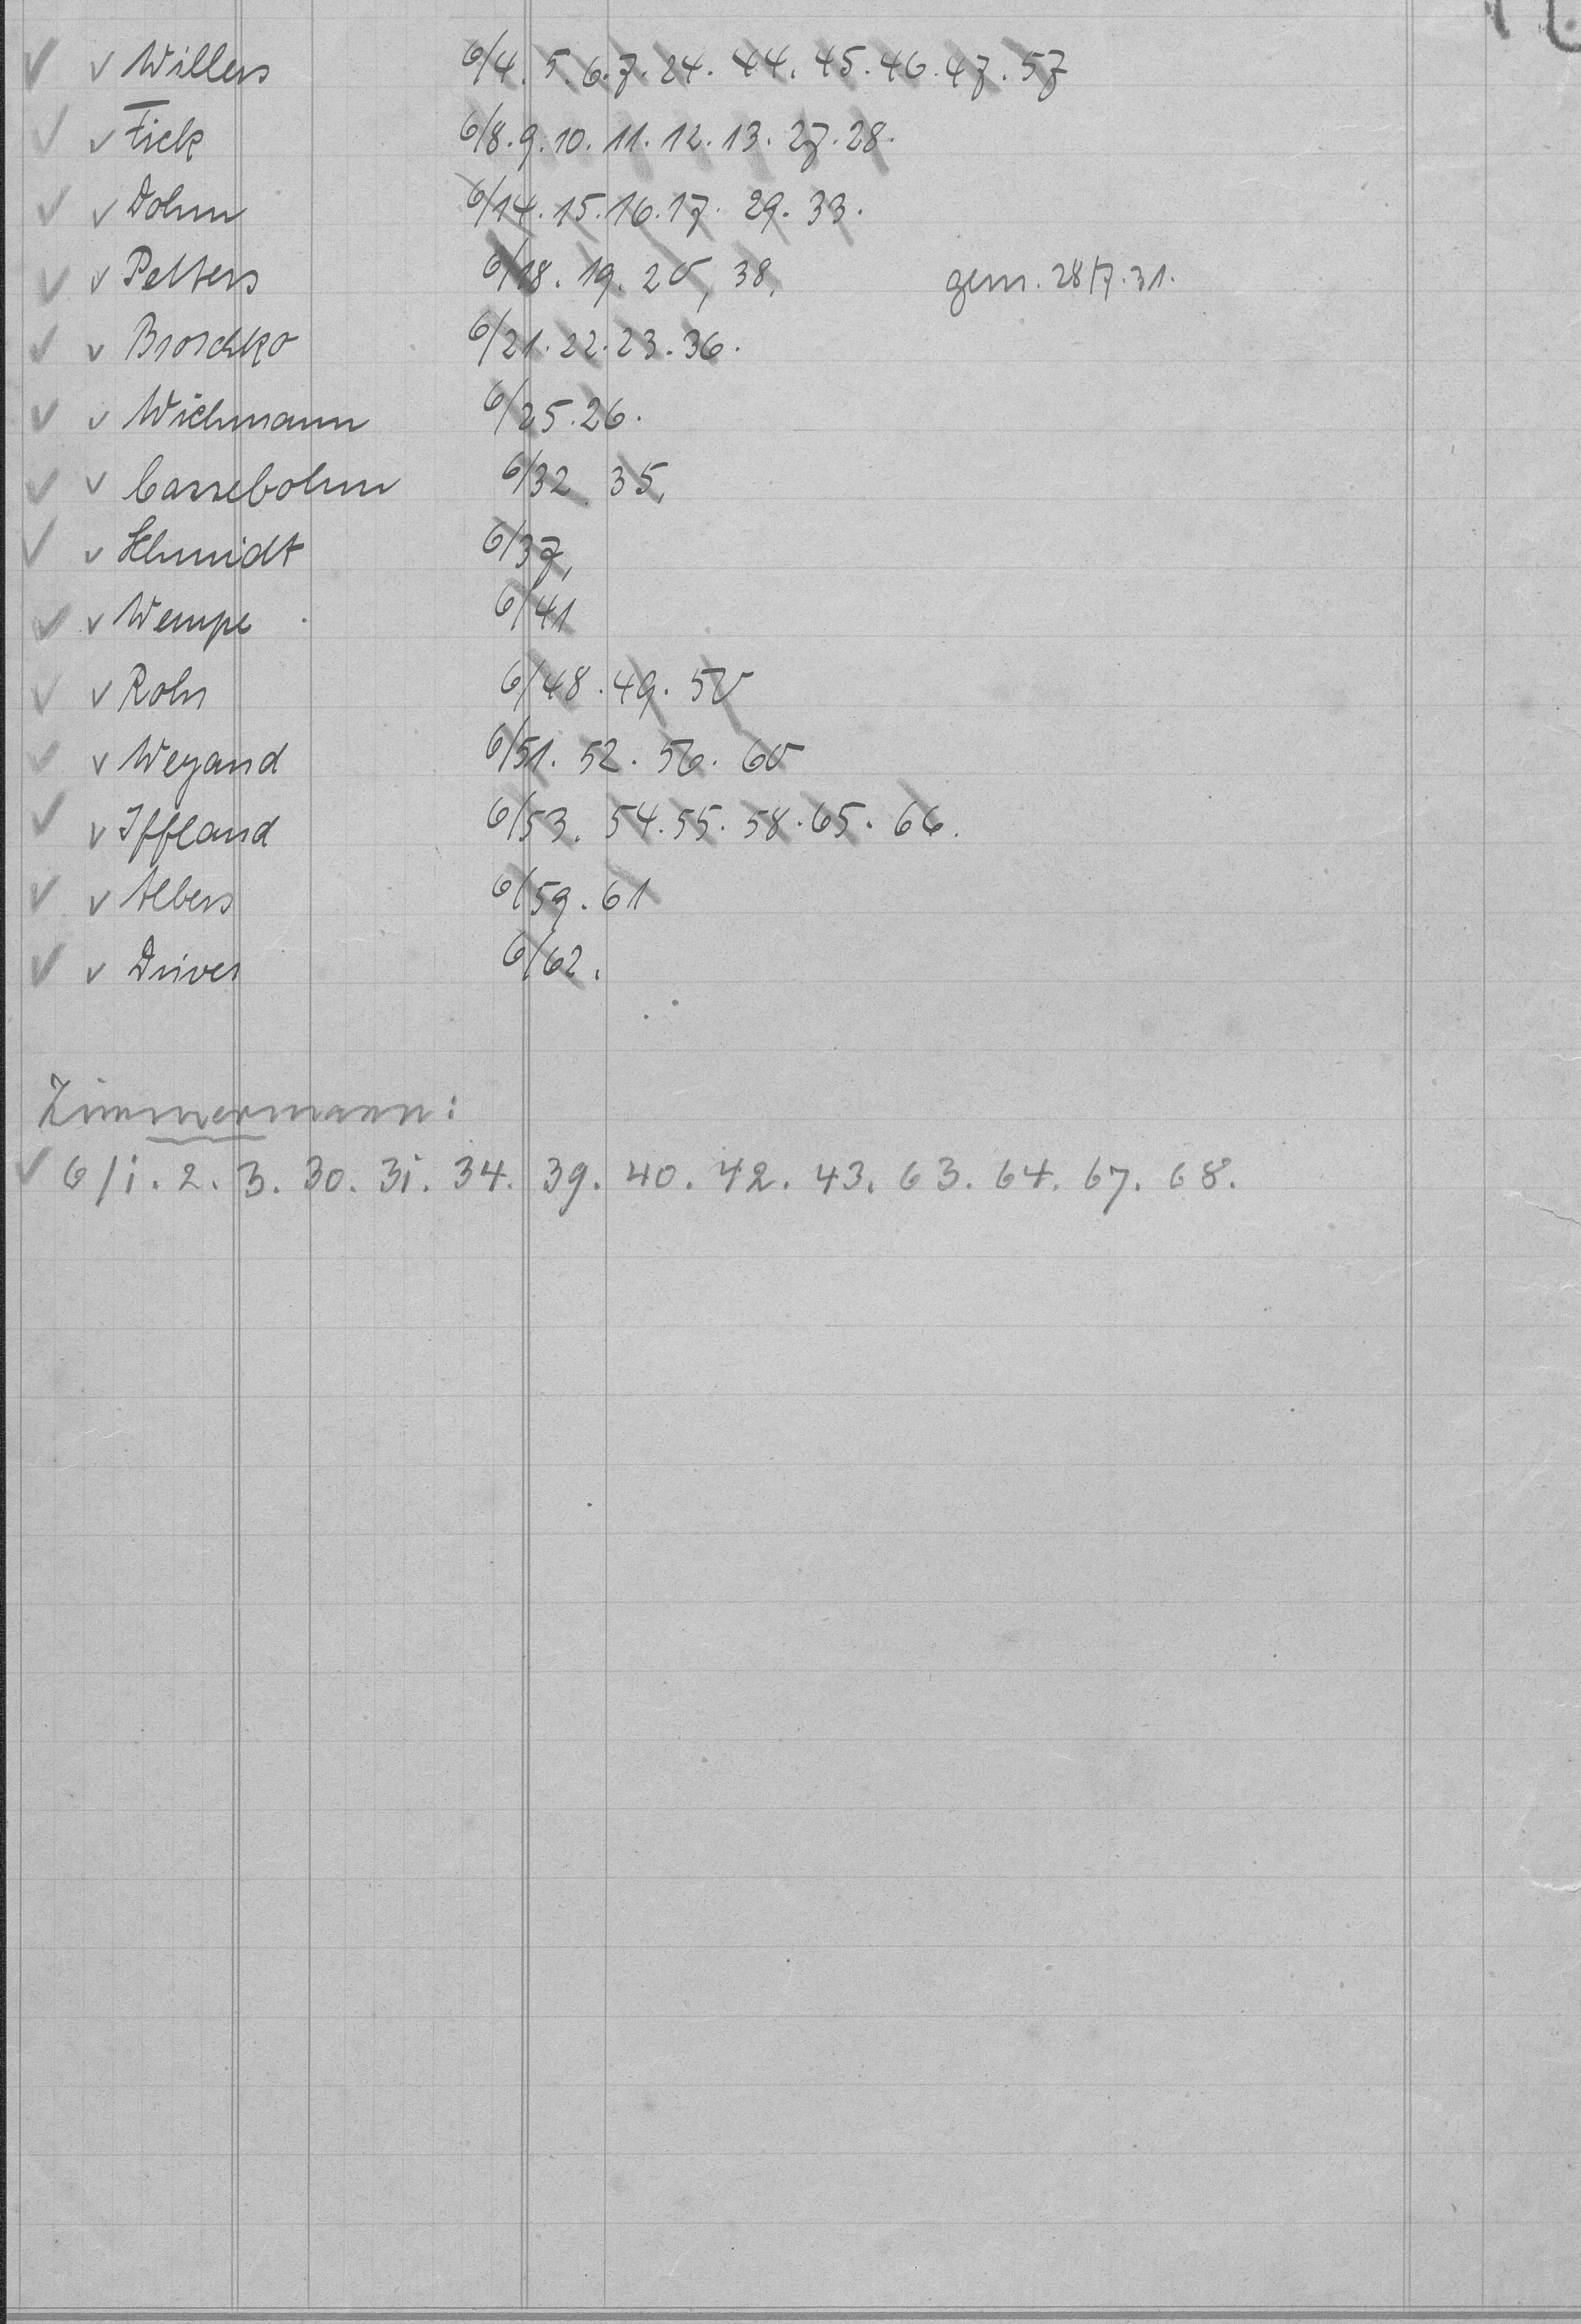 ✓ v Willers 6/4. 5. 6. 7. 24. 44. 45. 46. 47. 57
✓ v Fick 6/8. 9. 10. 11. 12. 13. 27. 28.
✓ v Dohm 6/14. 15. 16. 17. 29. 33.
✓ v Pelters 6/18. 19. 20, 38, gem. 28/7. 31.
✓ v Broschko 6/21. 22. 23. 36.
✓ v Wichmann 6/25. 26.
✓ v Cassebohm 6/32. 35,
✓ v Schmidt 6/37,
✓ v Wempe 6/41
✓ v Rohr 6/48. 49. 50
✓ v Weyand 6/51. 52. 56. 60
✓ v Iffland 6/53. 54. 55. 58. 65. 66.
✓ v Albers 6/59. 61
✓ v Driver 6/62.
Zimmermann:
✓ 6/1. 2. 3. 30. 31. 34. 39. 40. 42. 43. 63. 64. 67. 68.